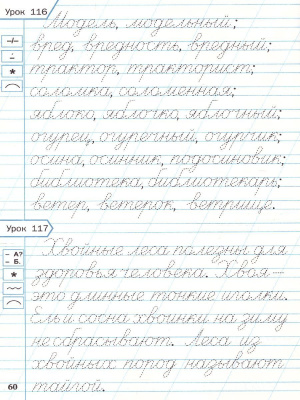 Урок 116
Модель, модельный;
вред, вредность, вредный;
трактор, тракторист;
соломка, соломенная;
яблоко, яблочко, яблочный;
огурец, огуречный, огурчик;
осина, осинник, подосиновик;
библиотека, библиотекарь;
ветер, ветерок, ветрище.
Урок 117
– А?
– Б.
Хвойные леса полезны для
здоровья человека. Хвоя –
это длинные тонкие иголки.
Ель и сосна хвоинки на зиму
не сбрасывают. Леса из
хвойных пород называют
тайгой.
60